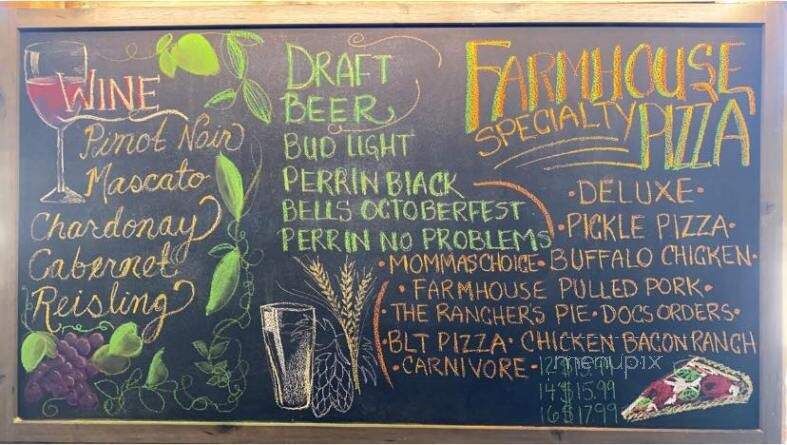 WINE
Pinot Noir
Mascato
Chardonay
Cabernet
Reisling
DRAFT
BEER
BUD LIGHT
PERRIN BLACK
BELLS OCTOBERFEST
PERRIN NO PROBLEMS
FARMHOUSE
SPECIALTY PIZZA
• DELUXE •
• PICKLE PIZZA •
• MOMMAS CHOICE • BUFFALO CHICKEN •
• FARMHOUSE PULLED PORK •
• THE RANCHERS PIE • DOCS ORDERS •
• BLT PIZZA • CHICKEN BACON RANCH
• CARNIVORE •
menupix
14 $15.99
16 $17.99